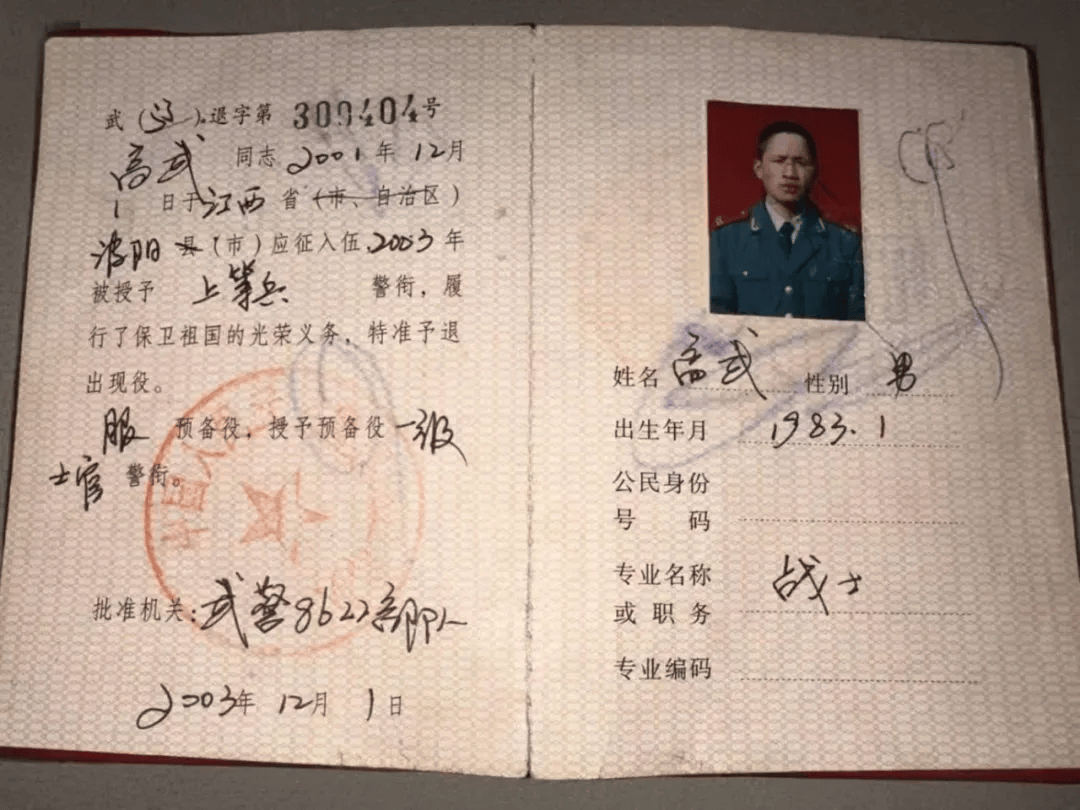 武(辽)退字第300404号
高武 同志2001年12月
1日于江西省(市、自治区)
波阳县(市)应征入伍2003年
被授予 上等兵 警衔,履
行了保卫祖国的光荣义务,特准予退
出现役。
服 预备役,授予预备役一级
士官 警衔。
批准机关:武警8622部队
2003年12月1日
姓名 高武 性别 男
出生年月 1983.1
公民身份
号 码
专业名称 战士
或职务
专业编码